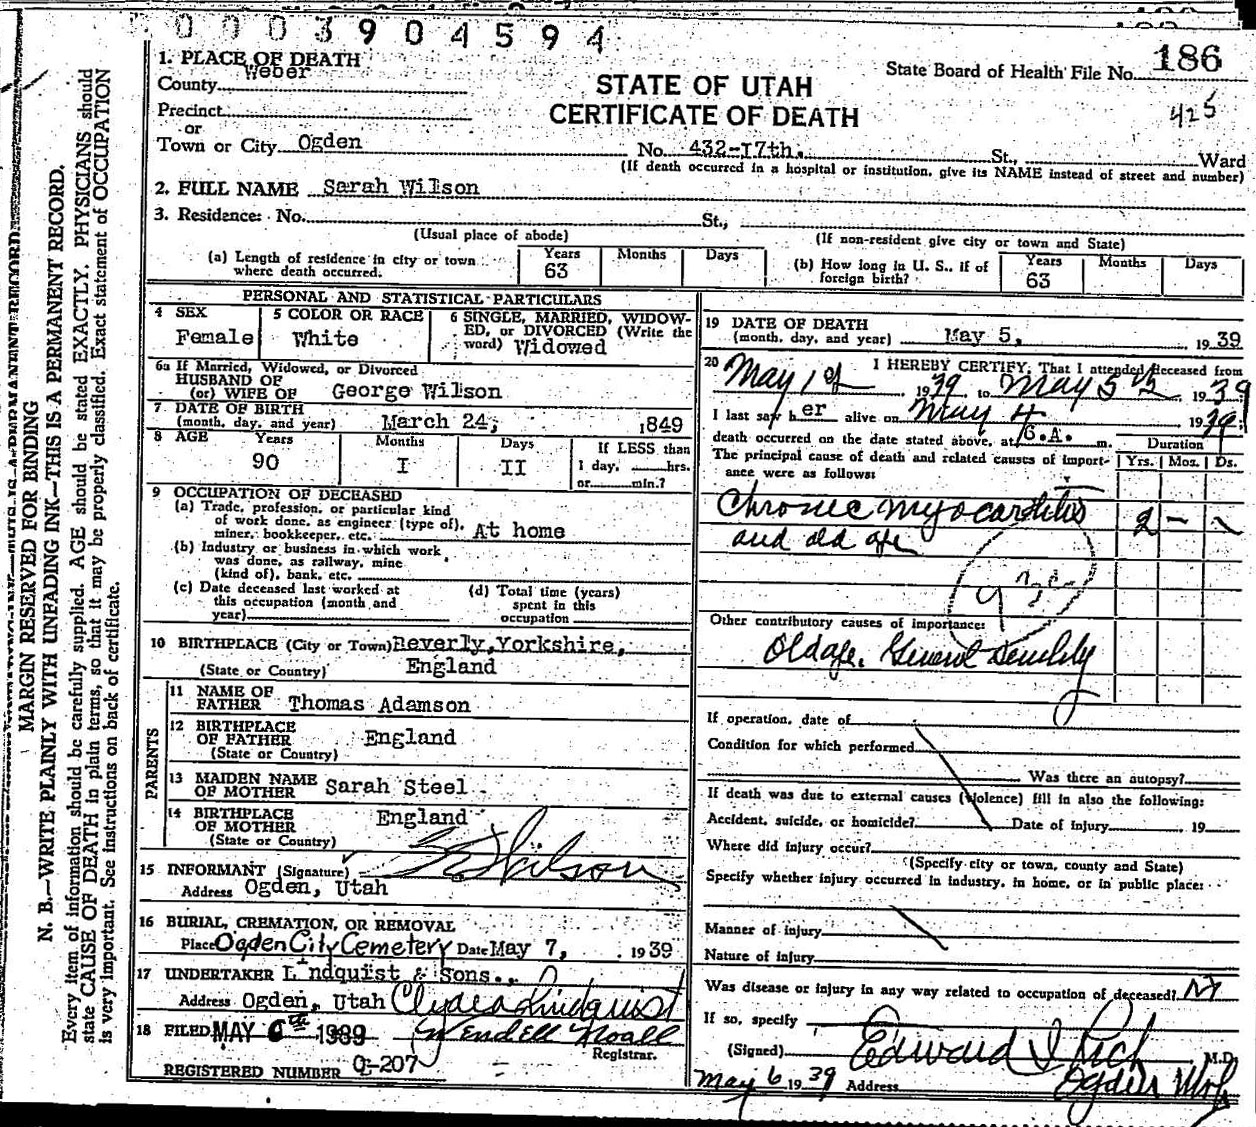 0003904594
State Board of Health File No. 186
425
STATE OF UTAH
CERTIFICATE OF DEATH
1. PLACE OF DEATH
County Weber
Precinct
or
Town or City Ogden No. 432-I7th. St., Ward
(If death occurred in a hospital or institution, give its NAME instead of street and number)
2. FULL NAME Sarah Wilson
3. Residence: No. St.,
(Usual place of abode) (If non-resident give city or town and State)
(a) Length of residence in city or town where death occurred. Years 63 Months Days
(b) How long in U. S., if of foreign birth? Years 63 Months Days
PERSONAL AND STATISTICAL PARTICULARS
4 SEX Female
5 COLOR OR RACE White
6 SINGLE, MARRIED, WIDOW-
ED, or DIVORCED (Write the
word) Widowed
6a If Married, Widowed, or Divorced
HUSBAND OF
(or) WIFE OF George Wilson
7 DATE OF BIRTH
(month, day, and year) March 24, 1849
8 AGE Years 90 Months I Days II
If LESS than
1 day, hrs.
or min.?
9 OCCUPATION OF DECEASED
(a) Trade, profession, or particular kind
of work done, as engineer (type of),
miner, bookkeeper, etc. At home
(b) Industry or business in which work
was done, as railway, mine
(kind of), bank, etc.
(c) Date deceased last worked at
this occupation (month and
year)
(d) Total time (years)
spent in this
occupation
10 BIRTHPLACE (City or Town) Beverly, Yorkshire,
(State or Country) England
PARENTS
11 NAME OF
FATHER Thomas Adamson
12 BIRTHPLACE
OF FATHER England
(State or Country)
13 MAIDEN NAME
OF MOTHER Sarah Steel
14 BIRTHPLACE
OF MOTHER England
(State or Country)
15 INFORMANT (Signature) Wilson
Address Ogden, Utah
16 BURIAL, CREMATION, OR REMOVAL
Place Ogden City Cemetery Date May 7, 1939
17 UNDERTAKER Lindquist & Sons.
Address Ogden, Utah Clyde A Lindquist
18 FILED MAY 6th 1939 Wendell Noall
Registrar.
REGISTERED NUMBER O-207
19 DATE OF DEATH
(month, day, and year) May 5, 1939
20 I HEREBY CERTIFY, That I attended deceased from
May 1st 1939 to May 5th, 1939
I last saw her alive on May 4 1939;
death occurred on the date stated above, at 6.A. m.
The principal cause of death and related causes of import-
ance were as follows:
Duration
Yrs. Mos. Ds.
Chronic Myocarditis 2 -
and old age
Other contributory causes of importance:
Old age. General Senility
If operation, date of
Condition for which performed
Was there an autopsy?
If death was due to external causes (violence) fill in also the following:
Accident, suicide, or homicide? Date of injury 19
Where did injury occur?
(Specify city or town, county and State)
Specify whether injury occurred in industry, in home, or in public place:
Manner of injury
Nature of injury
Was disease or injury in any way related to occupation of deceased?
If so, specify
(Signed) Edward I Rich M.D.
May 6 1939 Address Ogden
MARGIN RESERVED FOR BINDING
N. B.—WRITE PLAINLY WITH UNFADING INK—THIS IS A PERMANENT RECORD.
Every item of information should be carefully supplied. AGE should be stated EXACTLY. PHYSICIANS should
state CAUSE OF DEATH in plain terms, so that it may be properly classified. Exact statement of OCCUPATION
is very important. See instructions on back of certificate.